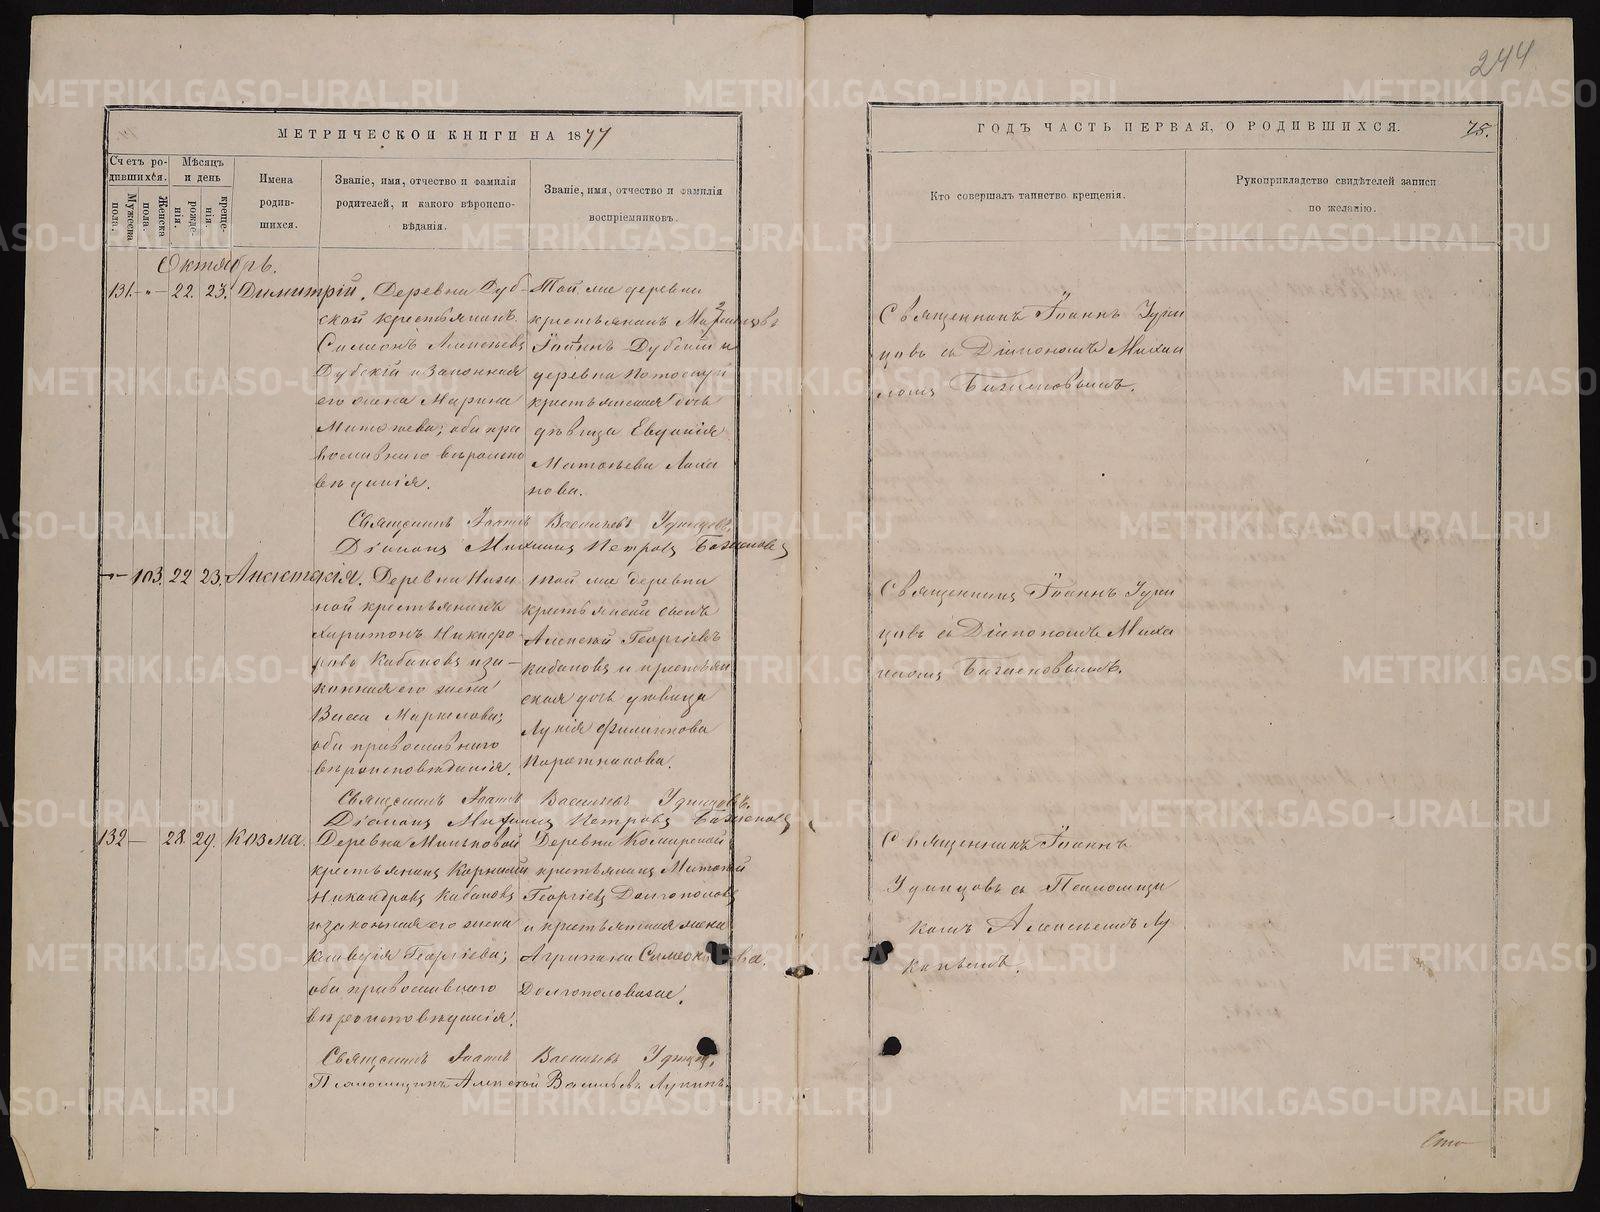 244
МЕТРИЧЕСКОЙ КНИГИ НА 1877
ГОДЪ ЧАСТЬ ПЕРВАЯ, О РОДИВШИХСЯ.
75.
Счетъ ро-
дившихся.
Мужеска
пола.
Женска
пола.
Мѣсяцъ
и день
рожде-
нія.
креще-
нія.
Имена
родив-
шихся.
Званіе, имя, отчество и фамилія
родителей, и какого вѣроиспо-
вѣданія.
Званіе, имя, отчество и фамилія
воспріемниковъ.
Кто совершалъ таинство крещенія.
Рукоприкладство свидѣтелей записи
по желанію.
Октябрь.
131. - " - 22. 23. Димитрій.
Деревни Дуб-
ской крестьянинъ
Симеонъ Алексѣевъ
Дубскій и законная
его жена Марина
Матѳѣева; оба пра
вославнаго вѣроиспо
вѣданія.
Той же деревни
крестьянинъ
Іоаннъ Дубскій и
деревни
крестьянская дочь
дѣвица Евдокія
Матѳѣева
нова.
Священникъ Іоаннъ
цовъ съ Діакономъ Михаи
ломъ Баженовымъ.
Священникъ Іоаннъ Васильевъ
Діаконъ Михаилъ Петровъ Баженовъ
103. 22 23. Анастасія.
Деревни
ной крестьянинъ
Харитонъ Никифо-
ровъ Кабаковъ и за-
конная его жена
Васса Маркелова;
оба православнаго
вѣроисповѣданія.
Той же деревни
крестьянскій сынъ
Алексѣй Георгіевъ
Кабаковъ и крестьян
ская дочь дѣвица
Лукія Филиппова
Священникъ Іоаннъ
цовъ съ Діакономъ Миха
иломъ Баженовымъ.
Священникъ Іоаннъ Васильевъ
Діаконъ Михаилъ Петровъ Баженовъ
132 — 28. 29. Козма.
Деревни Миньковой
крестьянинъ Корнилій
Никандровъ Кабаковъ
и законная его жена
Клавдія Георгіева;
оба православнаго
вѣроисповѣданія.
Деревни
крестьянинъ
Георгіевъ Долгополовъ
и крестьянская жена
Агрипина Симеонова
Долгополовыхъ.
Священникъ Іоаннъ
съ Псаломщи
комъ Алексѣемъ Лу
кинымъ.
Священникъ Іоаннъ Васильевъ
Псаломщикъ Алексѣй Васильевъ Лукинъ.
METRIKI.GASO-URAL.RU